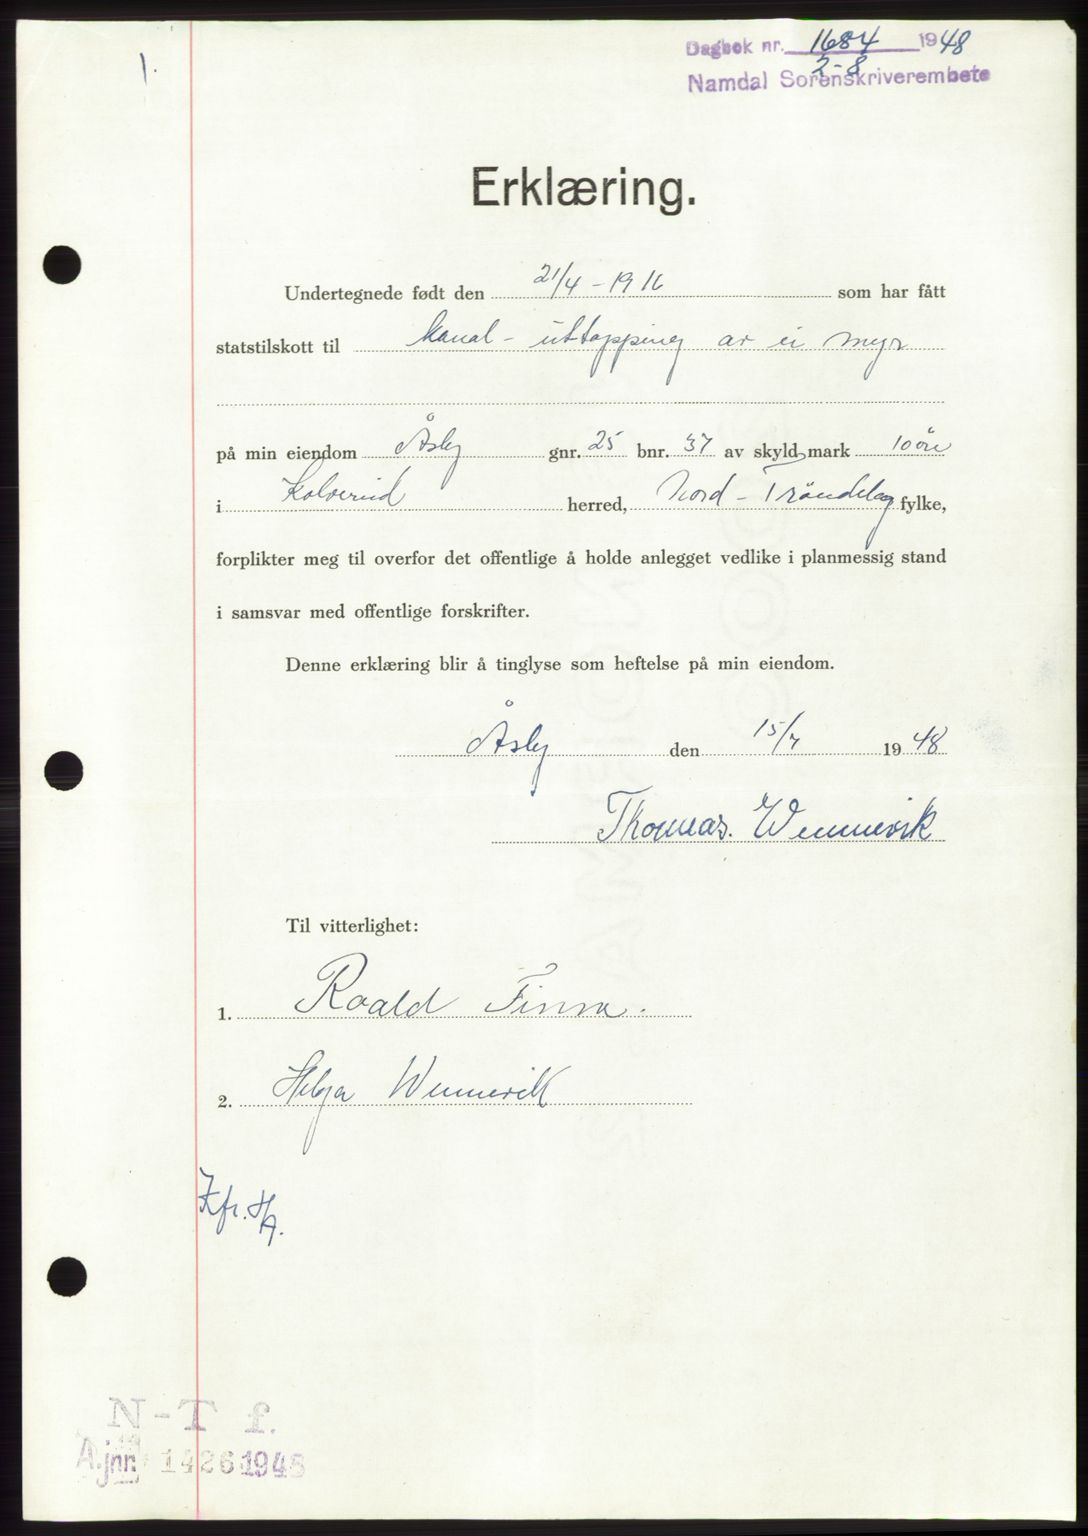 1.
Dagbok nr. 1684 1948
2-8
Namdal Sorenskriverembete
Erklæring.
Undertegnede født den 21/4 - 1916 som har fått
statstilskott til kanal - uttapping av ei myr
på min eiendom Åsly gnr. 25 bnr. 37 av skyld mark 10 öre
i Kolvereid herred, Nord - Tröndelag fylke,
forplikter meg til overfor det offentlige å holde anlegget vedlike i planmessig stand
i samsvar med offentlige forskrifter.
Denne erklæring blir å tinglyse som heftelse på min eiendom.
Åsly den 15/7 1948
Thomas. Wennevik
Til vitterlighet:
1. Roald Finne.
2. Helga Wennevik
Kfr. HA.
N-T f.
A.jnr. 1426 1948